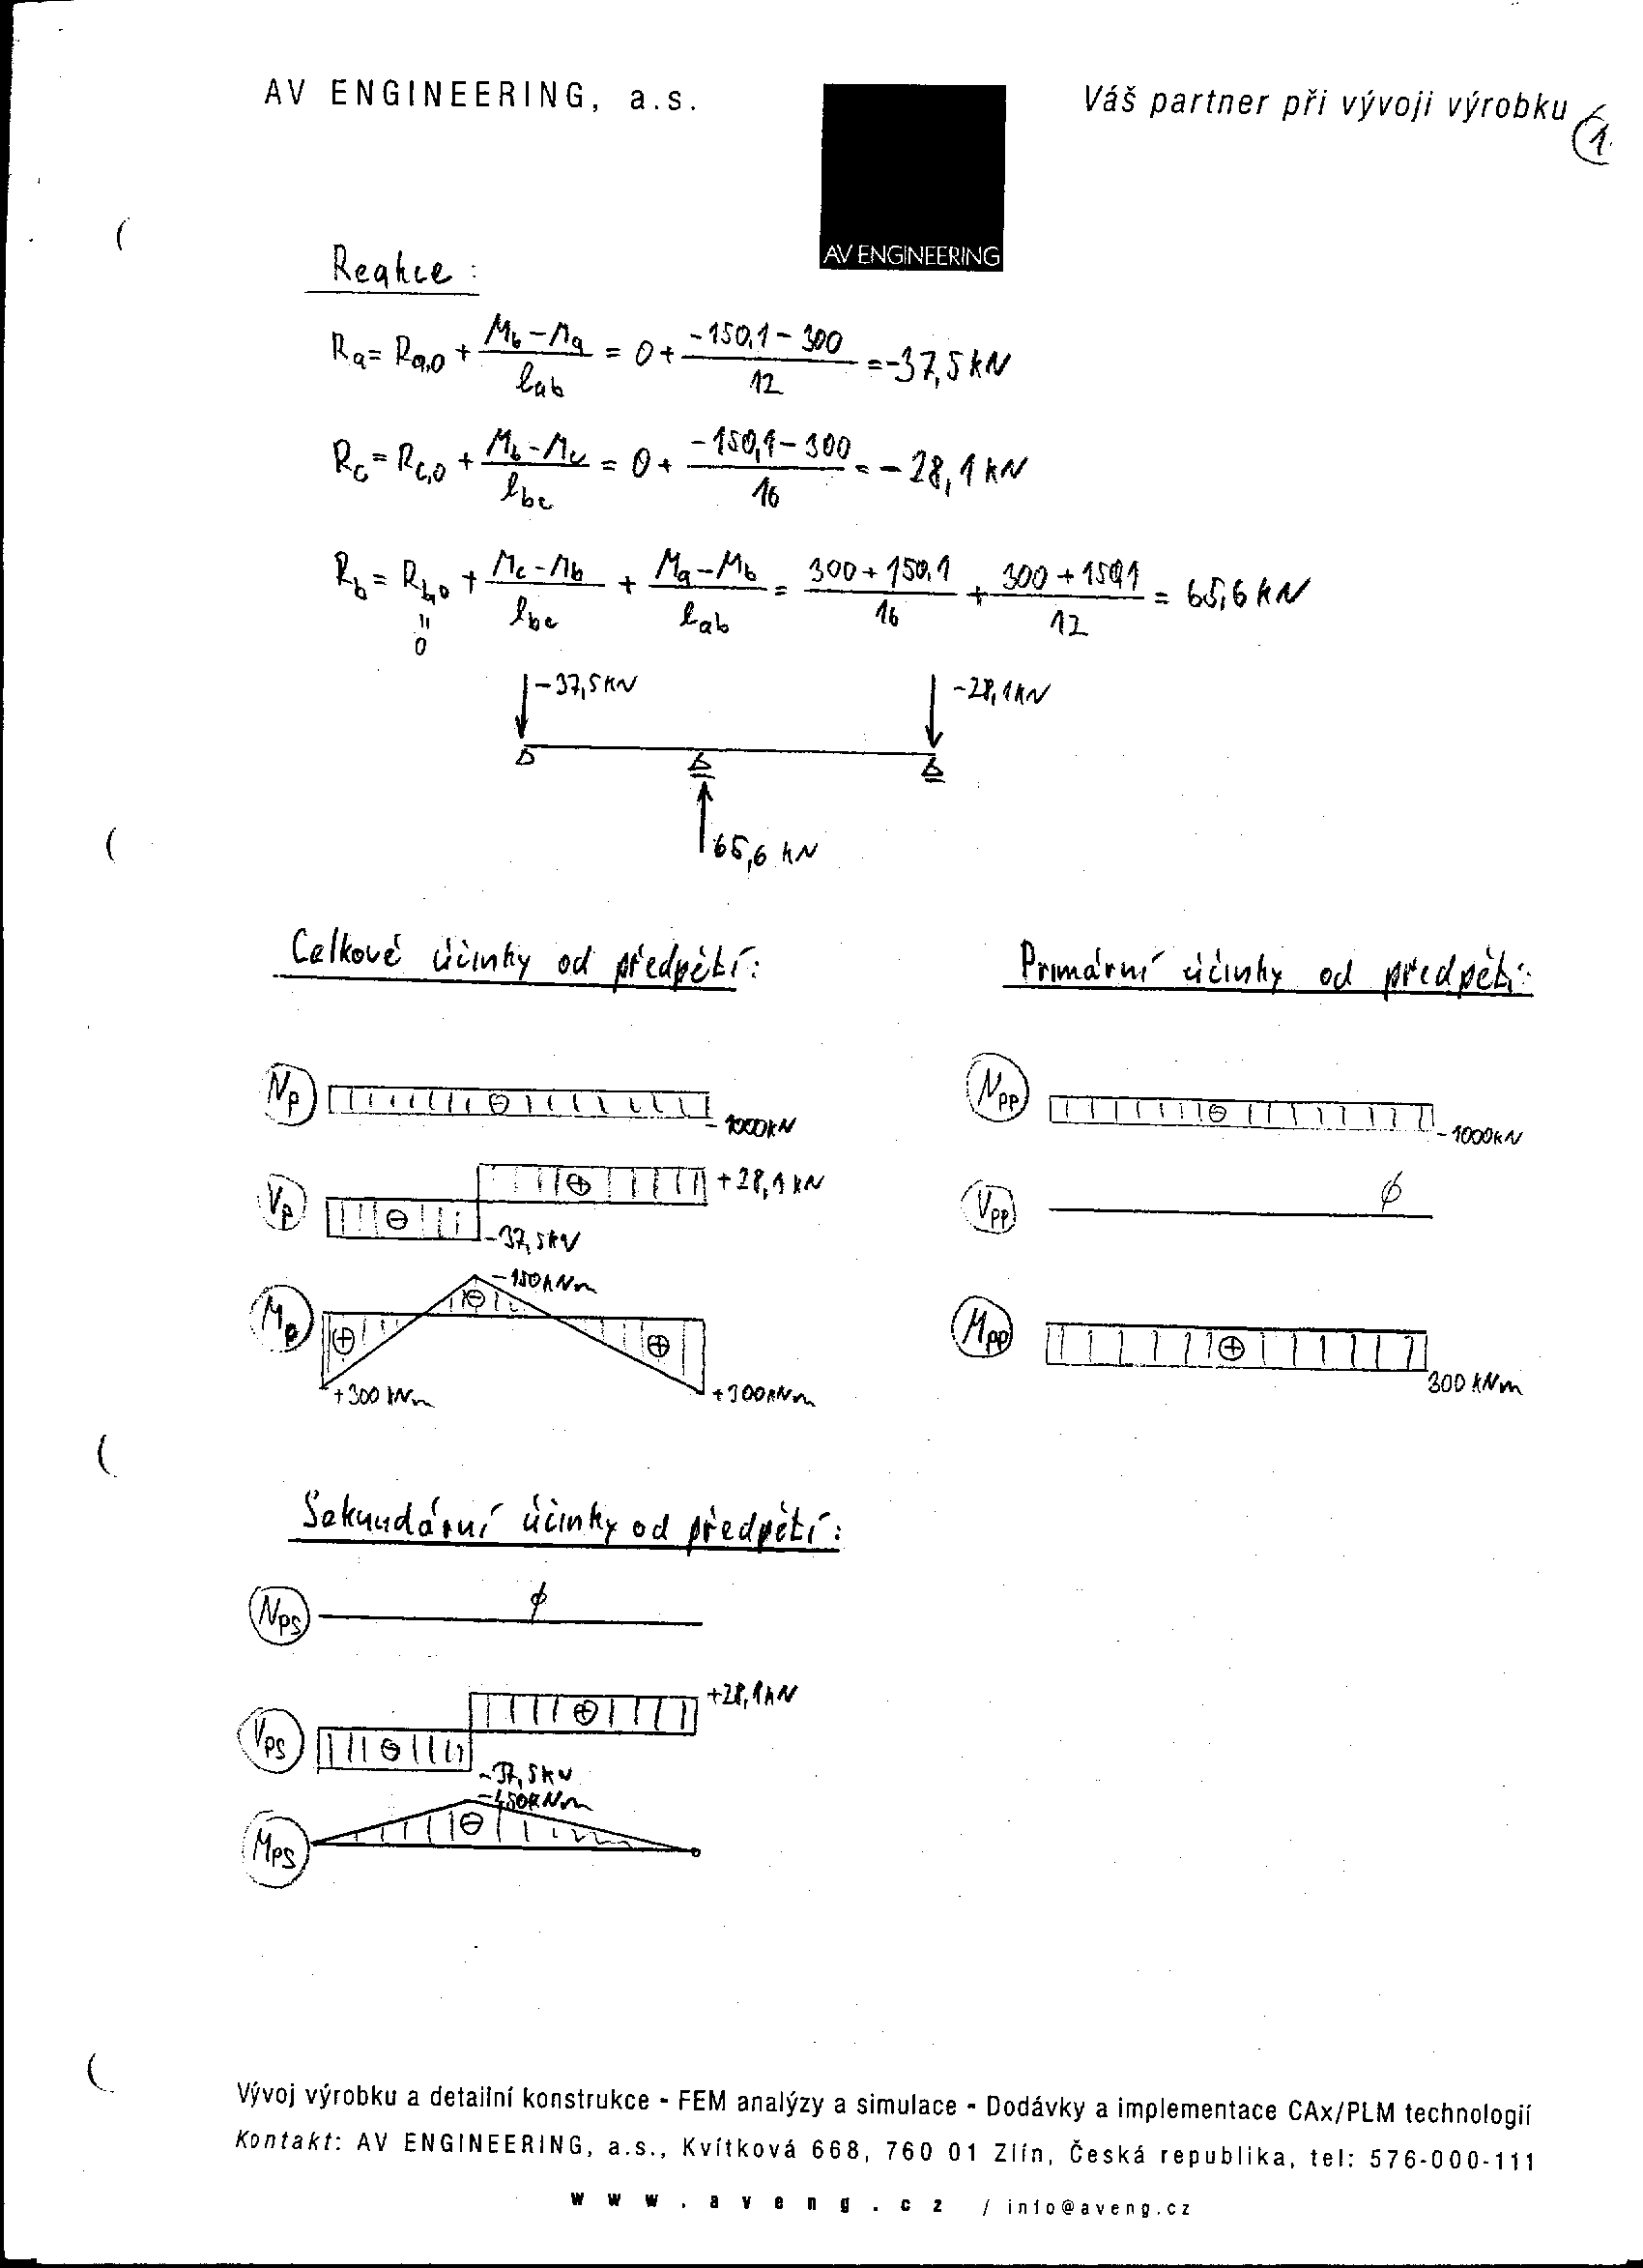 AV ENGINEERING, a.s.
Váš partner při vývoji výrobku
1.
AV ENGINEERING
Reakce :
Ra = Ra,0 + (Mb - Ma)/lab = 0 + (-150,1 - 300)/12 = -37,5 kN
Rc = Rc,0 + (Mb - Mc)/lbc = 0 + (-150,1 - 300)/16 = -28,1 kN
Rb = Rb,0 + (Mc - Mb)/lbc + (Ma - Mb)/lab = (300 + 150,1)/16 + (300 + 150,1)/12 = 65,6 kN
" 0
-37,5 kN
-28,1 kN
65,6 kN
Celkové účinky od předpětí:
Primární účinky od předpětí:
Np ⊖ -1000 kN
Npp ⊖ -1000 kN
Vp ⊖ -37,5 kN ⊕ +28,1 kN
Vpp ϕ
Mp ⊕ +300 kNm ⊖ -150 kNm ⊕ +300 kNm
Mpp ⊕ 300 kNm
Sekundární účinky od předpětí:
Nps ϕ
Vps ⊖ -37,5 kN ⊕ +28,1 kN
Mps ⊖ -450 kNm
Vývoj výrobku a detailní konstrukce - FEM analýzy a simulace - Dodávky a implementace CAx/PLM technologií
Kontakt: AV ENGINEERING, a.s., Kvítková 668, 760 01 Zlín, Česká republika, tel: 576-000-111
www.aveng.cz / info@aveng.cz